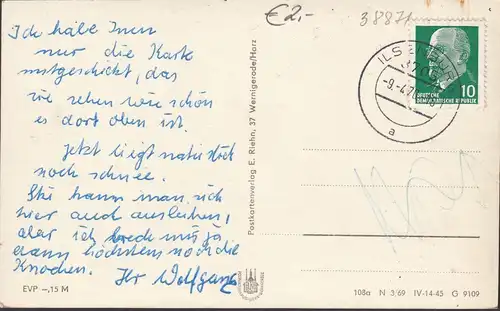 €2,-
38871
Ich habe Ihnen
nur die Karte
mitgeschickt, das
sie sehen wie schön
es dort oben ist.
Jetzt liegt natürlich
noch schnee.
Ski kann man sich
hier auch ausleihen,
aber ich breche mir ja
dann höchstens noch die
Knochen. Ihr Wolfgang
EVP -,15 M
Postkartenverlag E. Riehn, 37 Wernigerode/Harz
-9.4.7
a
10
DEUTSCHE
DEMOKRATISCHE REPUBLIK
108a N 3/69 IV-14-45 G 9109